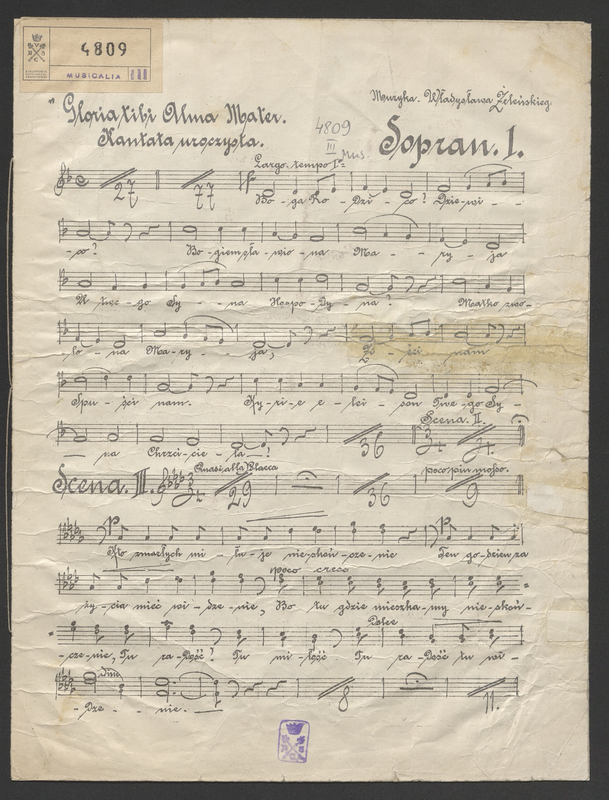 4809
MUSICALIA
"Gloria tibi Alma Mater.
Kantata uroczysta.
Muzyka. Władysława Żeleńskieg
4809
III
Mus.
Sopran. I.
Largo. tempo I°=
27 77
Bo - ga Ro - dzi - co! Dzie - wi - -
- co! Bo - giem sła - wio - na Ma - - ry - ja
U twe - go Sy - - na Hospo - dy - na! Matko zwo -
- lo - na Ma - ry - - ja, Zi - ści nam
Spu - ści nam. Ky - ri - e e - lei - son Twe - go Sy -
Scena. II.
- na Chrzci - cie - la - !
36 34 34
Scena. III.
Quasi alla Blacca
poco più mosso.
29 36 9
Kto zmarłych mi - łu - je nie skoń - cze - nie Ten godzien za
poco cresc
ży - cia mieć wi - dze - nie, Bo tu gdzie mieszka - my nie - skoń -
Dolce
- cze - nie, Tu ra - dość! Tu mi - łość Tu ra - dość tu wi -
dim
- dze - - nie. -
8 11.